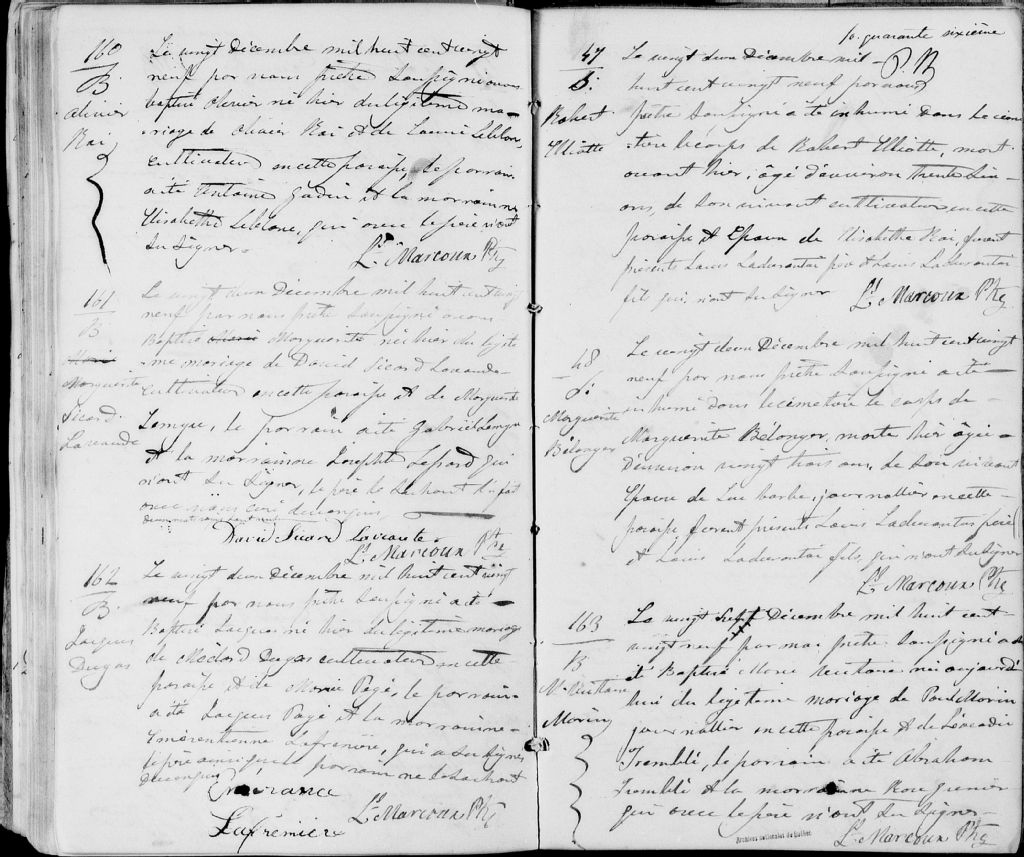 160
B.
Olivier
Roi
Le vingt Décembre mil huit cent vingt
neuf par nous prêtre soussigné avons
baptisé Olivier né hier du légitime ma-
riage de Olivier Roi et de Leblanc,
cultivateur en cette paroisse, le parrain
a été Antoine et la marraine
Elisabethe Leblanc, qui avec le père n'ont
su signer.
Ls. Marcoux Ptre
161
B
Marie
Marguerite
Sicard
Lavande
Le vingt deux Décembre mil huit cent vingt
neuf par nous prêtre soussigné a été
Baptisé Marie Marguerite née hier du légiti-
me mariage de David Sicard
cultivateur en cette paroisse et de Marguerite
le parrain a été Gabriel
et la marraine Josephte qui
n'ont su signer, le père le sachant l'a fait
avec nous
David Sicard
Ls. Marcoux Ptre
162
B.
Jacques
Dugas
Le vingt deux Décembre mil huit cent vingt
neuf par nous prêtre soussigné a été
Baptisé Jacques né hier du légitime mariage
de Médard Dugas cultivateur en cette
paroisse et de Marie Pagé, le parrain
a été Jacques Pagé et la marraine
Emérentienne Lafrenière, qui a su signer
le père ainsi que le parrain ne le sachant
Lafrenière
Ls. Marcoux Ptre
quarante sixième
P. R
47
S.
Robert
Elliotte
Le vingt deux Décembre mil
huit cent vingt neuf par nous
prêtre soussigné a été inhumé dans le cime-
tière le corps de Robert Elliotte, mort
avant hier, âgé d'environ trente
ans, de son vivant cultivateur en cette
paroisse et Epoux de Elisabethe Roi, furent
présents Louis Ladurantai père et Louis Ladurantai
fils qui n'ont su signer
Ls. Marcoux Ptre
48
S.
Marguerite
Bélanger
Le vingt deux Décembre mil huit cent vingt
neuf par nous prêtre soussigné a été
inhumé dans le cimetière le corps de
Marguerite Bélanger, morte hier âgée
d'environ vingt trois ans, de son vivant
Epouse de Luc barbe, journallier en cette
paroisse, furent présents Louis Ladurantai père
et Louis Ladurantai fils, qui n'ont su signer
Ls. Marcoux Ptre
163
B
Morin
Le vingt Sept Décembre mil huit cent
vingt neuf par moi prêtre soussigné a
été Baptisé Marie née aujourd'
hui du légitime mariage de Paul Morin
journallier en cette paroisse et de Léocadie
Tremblé, le parrain a été Abraham
Tremblé et la marraine
qui avec le père n'ont su signer
Ls. Marcoux Ptre
Archives nationales du Québec